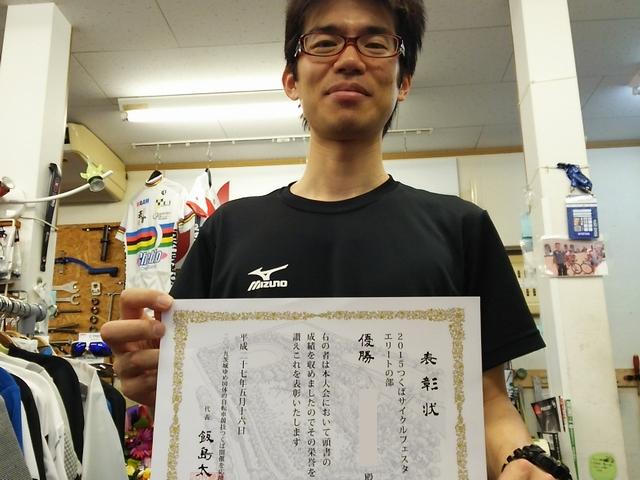 表彰状
2015つくばサイクルフェスタ
エリートの部
優勝
殿
右の者は本大会において頭書の
成績を収めましたのでその栄誉を
讃えこれを表彰いたします。
平成二十七年五月十六日
代表 飯島太
MIZUNO